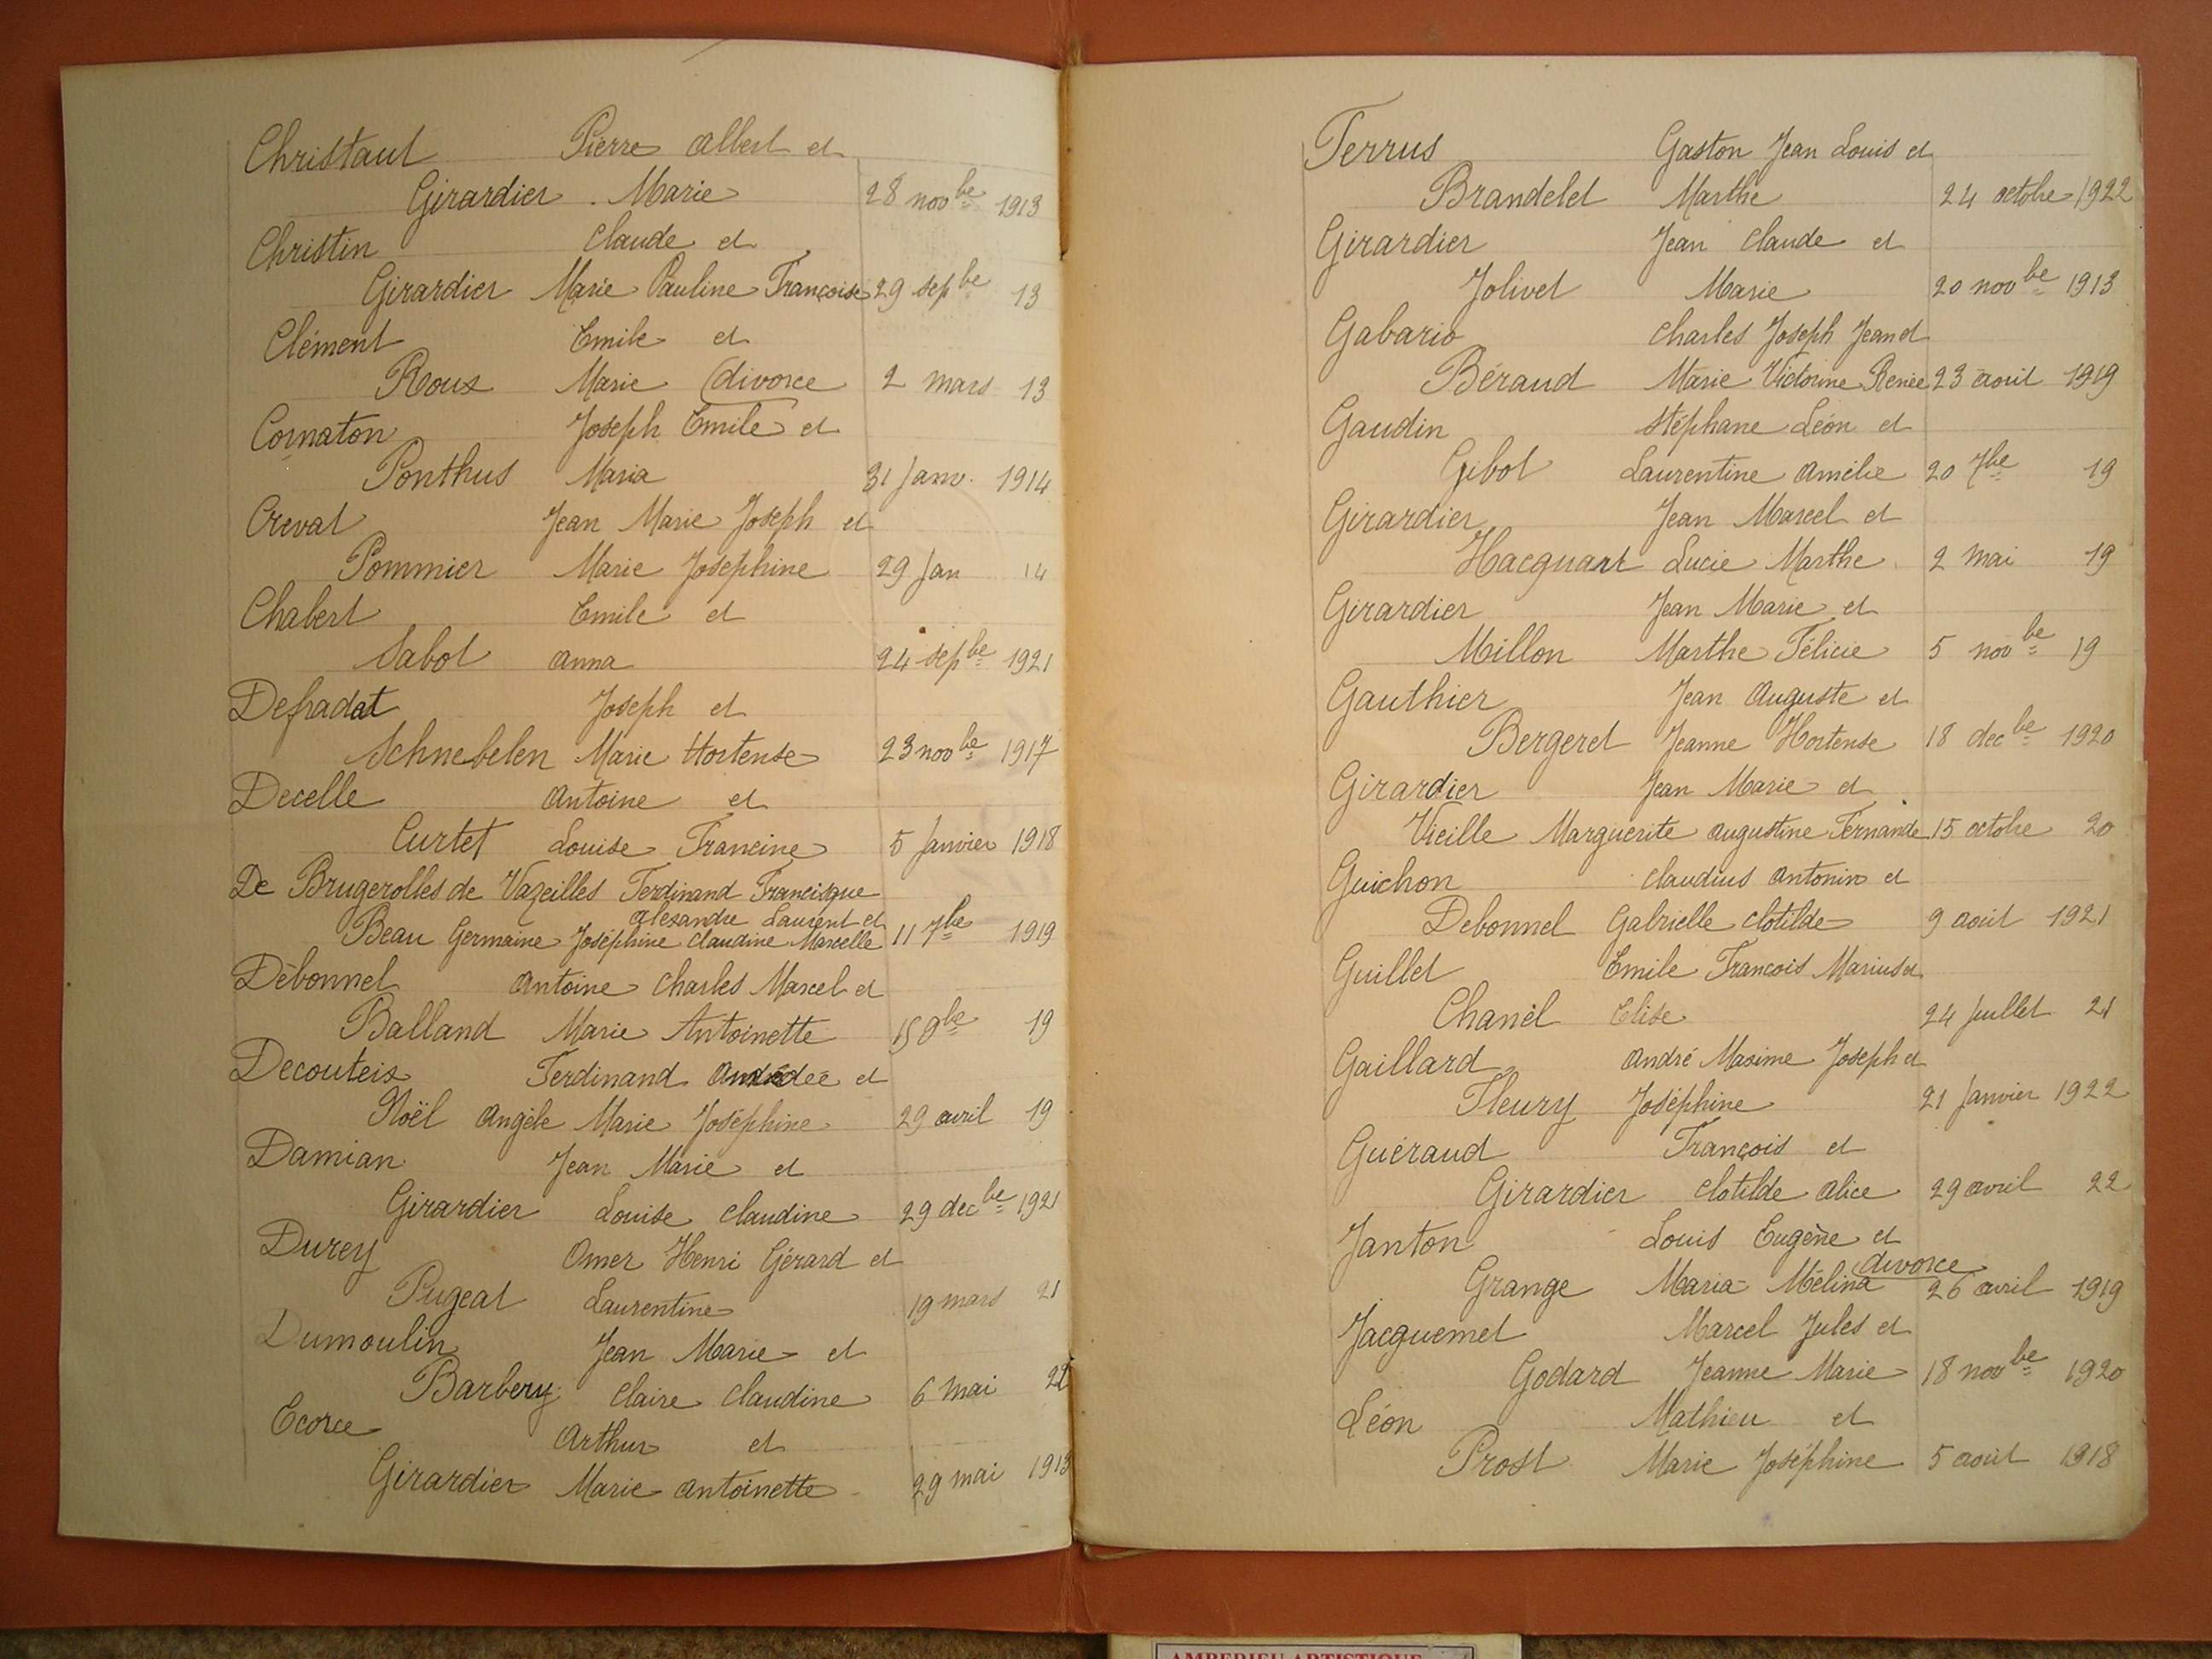 Christaut Pierre Albert et
Girardier Marie 28 nov be 1913
Christin Claude et
Girardier Marie Pauline Françoise 29 sep be 13
Clément Emile et
Roux Marie (divorce 2 mars 13
Cornaton Joseph Emile et
Ponthus Maria 31 Janv. 1914
Crevat Jean Marie Joseph et
Pommier Marie Joséphine 29 Jan 14
Chabert Emile et
Sabot Anna 24 sep be 1921
Defradat Joseph et
Schnebelen Marie Hortense 23 nov be 1917
Decelle Antoine et
Curtet Louise Francine 5 Janvier 1918
De Brugerolles de Vazeilles Ferdinand Francisque
Alexandre Laurent et
Beau Germaine Joséphine Claudine Marcelle 11 7be 1919
Débonnel Antoine Charles Marcel et
Balland Marie Antoinette 15 9be 19
Decouteix Ferdinand et
Noël Angèle Marie Joséphine 29 avril 19
Damian Jean Marie et
Girardier Louise Claudine 29 dec be 1921
Durey Omer Henri Gérard et
Pugeat Laurentine 19 mars 21
Dumoulin Jean Marie et
Barbery Claire Claudine 6 Mai
Ecorce Arthur et
Girardier Marie Antoinette 29 mai 1913
Ferrus Gaston Jean Louis et
Brandelet Marthe 24 octobre 1922
Girardier Jean Claude et
Jolivet Marie 20 nov be 1913
Gabario Charles Joseph Jean et
Béraud Marie Victorine Renée 23 août 1919
Gaudin Stéphane Léon et
Gibot Laurentine Amélie 20 7be 19
Girardier Jean Marcel et
Hacquart Lucie Marthe 2 Mai 19
Girardier Jean Marie et
Millon Marthe Félicie 5 nov be 19
Gauthier Jean Auguste et
Bergeret Jeanne Hortense 18 dec be 1920
Girardier Jean Marie et
Vieille Marguerite Augustine Fernande 15 octobre 20
Guichon Claudius Antonin et
Debonnel Gabrielle Clotilde 9 août 1921
Guillet Emile François Marius et
Chanel Elise 24 Juillet 21
Gaillard André Maxime Joseph et
Fleury Joséphine 21 Janvier 1922
Guéraud François et
Girardier Clotilde Alice 29 avril 22
Janton Louis Eugène et
divorce
Grange Maria Mélina 26 avril 1919
Jacquemet Marcel Jules et
Godard Jeanne Marie 18 nov be 1920
Léon Mathieu et
Prost Marie Joséphine 5 août 1918
AMBERIEU ARTISTIQUE